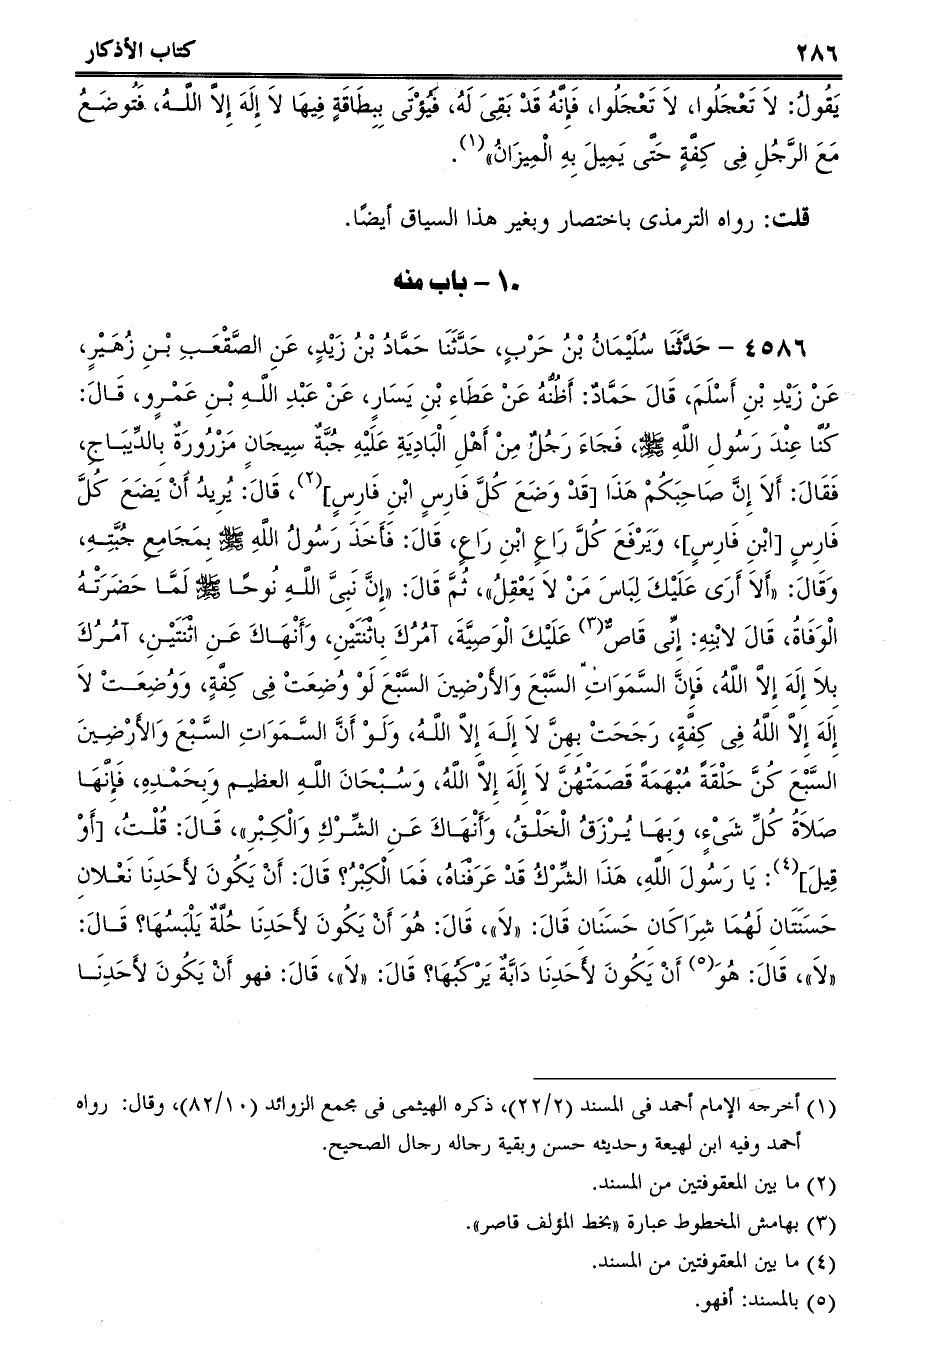 ٢٨٦ كتاب الأذكار
يَقُولُ: لاَ تَعْجَلُوا، لاَ تَعْجَلُوا، فَإِنَّهُ قَدْ بَقِىَ لَهُ، فَيُؤْتَى بِبِطَاقَةٍ فِيهَا لاَ إِلَهَ إِلاَّ اللَّهُ، فَتُوضَعُ
مَعَ الرَّجُلِ فِى كِفَّةٍ حَتَّى يَمِيلَ بِهِ الْمِيزَانُ»(١).
قلت: رواه الترمذى باختصار وبغير هذا السياق أيضًا.
١٠ - باب منه
٤٥٨٦ - حَدَّثَنَا سُلَيْمَانُ بْنُ حَرْبٍ، حَدَّثَنَا حَمَّادُ بْنُ زَيْدٍ، عَنِ الصَّقْعَبِ بْنِ زُهَيْرٍ،
عَنْ زَيْدِ بْنِ أَسْلَمَ، قَالَ حَمَّادٌ: أَظُنُّهُ عَنْ عَطَاءِ بْنِ يَسَارٍ، عَنْ عَبْدِ اللَّهِ بْنِ عَمْرٍو، قَالَ:
كُنَّا عِنْدَ رَسُولِ اللَّهِ ﷺ، فَجَاءَ رَجُلٌ مِنْ أَهْلِ الْبَادِيَةِ عَلَيْهِ جُبَّةٌ سِيجَانٍ مَزْرُورَةٌ بِالدِّيبَاجِ،
فَقَالَ: أَلاَ إِنَّ صَاحِبَكُمْ هَذَا [قَدْ وَضَعَ كُلَّ فَارِسٍ ابْنِ فَارِسٍ](٢)، قَالَ: يُرِيدُ أَنْ يَضَعَ كُلَّ
فَارِسٍ [ابْنِ فَارِسٍ]، وَيَرْفَعَ كُلَّ رَاعٍ ابْنِ رَاعٍ، قَالَ: فَأَخَذَ رَسُولُ اللَّهِ ﷺ بِمَجَامِعِ جُبَّتِهِ،
وَقَالَ: «أَلاَ أَرَى عَلَيْكَ لِبَاسَ مَنْ لاَ يَعْقِلُ»، ثُمَّ قَالَ: «إِنَّ نَبِىَّ اللَّهِ نُوحًا ﷺ لَمَّا حَضَرَتْهُ
الْوَفَاةُ، قَالَ لابْنِهِ: إِنِّى قَاصٌّ(٣) عَلَيْكَ الْوَصِيَّةَ، آمُرُكَ بِاثْنَتَيْنِ، وَأَنْهَاكَ عَنِ اثْنَتَيْنِ، آمُرُكَ
بِلاَ إِلَهَ إِلاَّ اللَّهُ، فَإِنَّ السَّمَوَاتِ السَّبْعَ وَالأَرْضِينَ السَّبْعَ لَوْ وُضِعَتْ فِى كِفَّةٍ، وَوُضِعَتْ لاَ
إِلَهَ إِلاَّ اللَّهُ فِى كِفَّةٍ، رَجَحَتْ بِهِنَّ لاَ إِلَهَ إِلاَّ اللَّهُ، وَلَوْ أَنَّ السَّمَوَاتِ السَّبْعَ وَالأَرْضِينَ
السَّبْعَ كُنَّ حَلْقَةً مُبْهَمَةً قَصَمَتْهُنَّ لاَ إِلَهَ إِلاَّ اللَّهُ، وَسُبْحَانَ اللَّهِ العظيم وَبِحَمْدِهِ، فَإِنَّهَا
صَلاَةُ كُلِّ شَىْءٍ، وَبِهَا يُرْزَقُ الْخَلْقُ، وَأَنْهَاكَ عَنِ الشِّرْكِ وَالْكِبْرِ»، قَالَ: قُلْتُ، [أَوْ
قِيلَ](٤): يَا رَسُولَ اللَّهِ، هَذَا الشِّرْكُ قَدْ عَرَفْنَاهُ، فَمَا الْكِبْرُ؟ قَالَ: أَنْ يَكُونَ لأَحَدِنَا نَعْلانِ
حَسَنَتَانِ لَهُمَا شِرَاكَانِ حَسَنَانِ قَالَ: «لاَ»، قَالَ: هُوَ أَنْ يَكُونَ لأَحَدِنَا حُلَّةٌ يَلْبَسُهَا؟ قَالَ:
«لاَ»، قَالَ: هُوَ(٥) أَنْ يَكُونَ لأَحَدِنَا دَابَّةٌ يَرْكَبُهَا؟ قَالَ: «لاَ»، قَالَ: فهو أَنْ يَكُونَ لأَحَدِنَا
(١) أخرجه الإمام أحمد فى المسند (٢٢/٢)، ذكره الهيثمى فى مجمع الزوائد (٨٢/١٠)، وقال: رواه
أحمد وفيه ابن لهيعة وحديثه حسن وبقية رجاله رجال الصحيح.
(٢) ما بين المعقوفتين من المسند.
(٣) بهامش المخطوط عبارة «بخط المؤلف قاصر».
(٤) ما بين المعقوفتين من المسند.
(٥) بالمسند: أفهو.